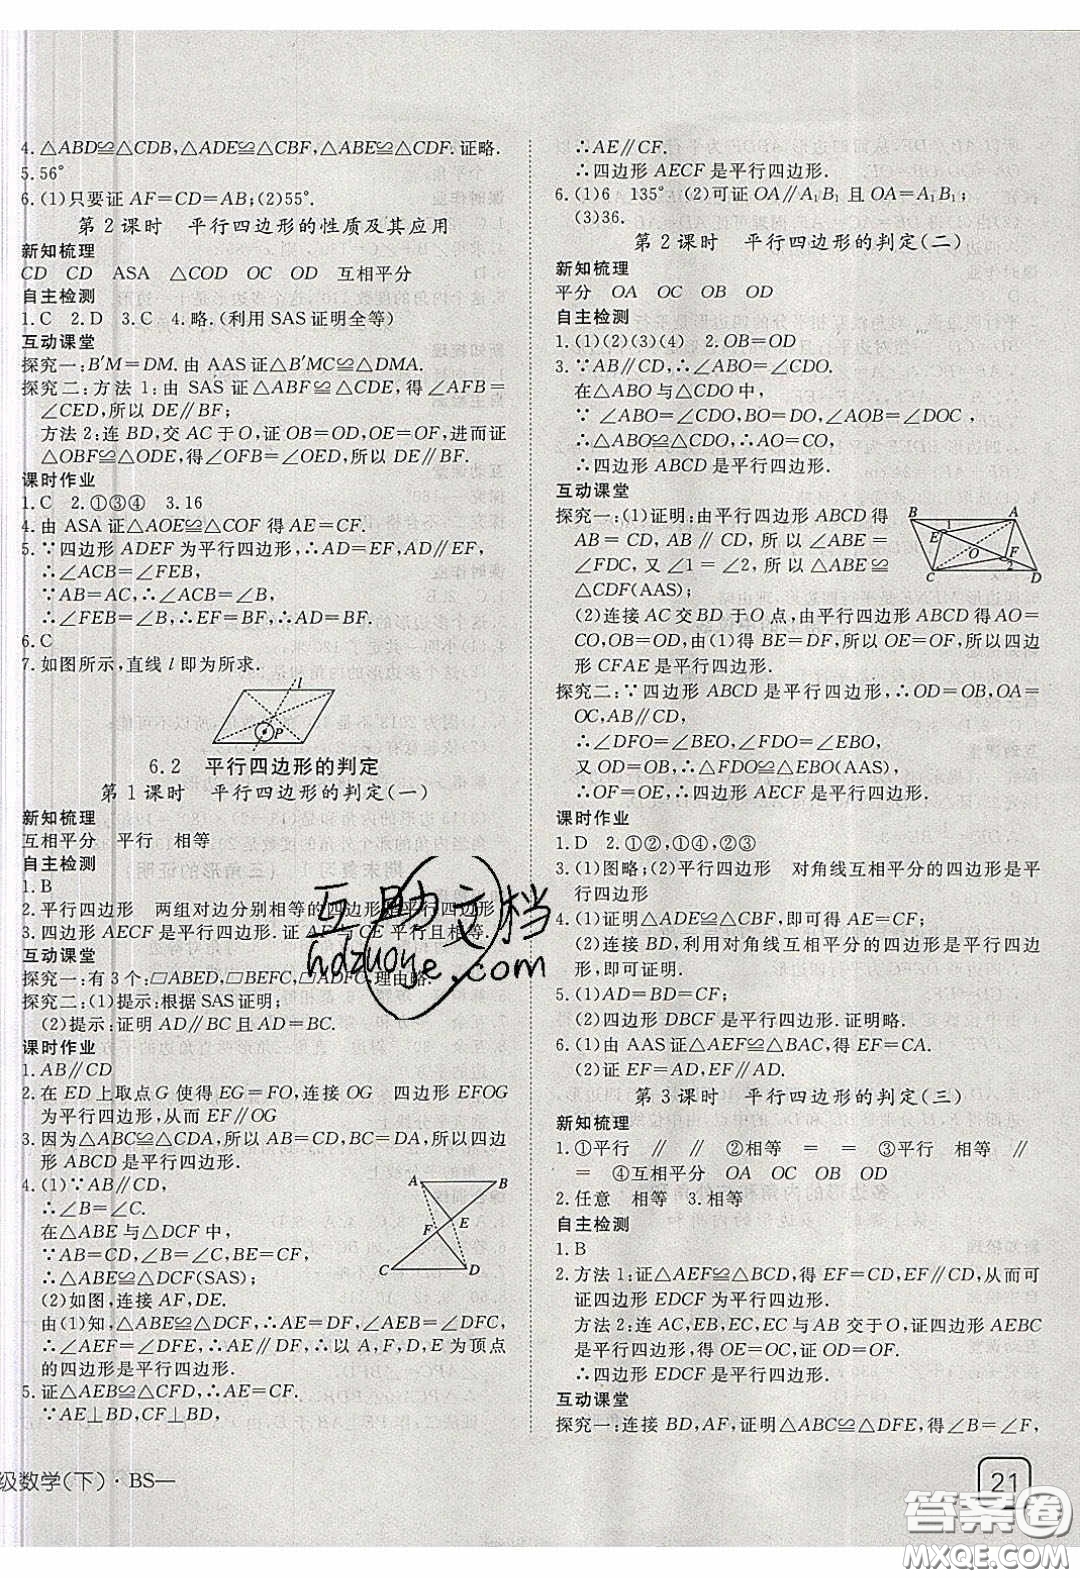 4.△ABD≌△CDB,△ADE≌△CBF,△ABE≌△CDF.证略.
5.56°
6.(1)只要证AF=CD=AB;(2)55°.
第2课时 平行四边形的性质及其应用
新知梳理
CD CD ASA △COD OC OD 互相平分
自主检测
1.C 2.D 3.C 4.略.(利用SAS证明全等)
互动课堂
探究一:B′M=DM.由AAS证△B′MC≌△DMA.
探究二:方法1:由SAS证△ABF≌△CDE,得∠AFB=
∠CED,所以DE∥BF;
方法2:连BD,交AC于O,证OB=OD,OE=OF,进而证
△OBF≌△ODE,得∠OFB=∠OED,所以DE∥BF.
课时作业
1.C 2.①③④ 3.16
4.由ASA证△AOE≌△COF得AE=CF.
5.∵四边形ADEF为平行四边形,∴AD=EF,AD∥EF,
∴∠ACB=∠FEB,
∵AB=AC,∴∠ABC=∠ACB,
∴∠FEB=∠B,∴EF=BF,∴AD=BF.
6.C
7.如图所示,直线l即为所求.
l
P
6.2 平行四边形的判定
第1课时 平行四边形的判定(一)
新知梳理
互相平分 平行 相等
自主检测
1.B
2.平行四边形 两组对边分别相等的四边形是平行四边形
3.四边形AECF是平行四边形.证AF与CE平行且相等.
互动课堂
探究一:有3个:▱ABED,▱BEFC,▱ADFC,理由略.
探究二:(1)提示:根据SAS证明;
(2)提示:证明AD∥BC且AD=BC.
课时作业
1.AB∥CD
2.在ED上取点G使得EG=FO,连接OG 四边形EFOG
为平行四边形,从而EF∥OG
3.因为△ABC≌△CDA,所以AB=CD,BC=DA,所以四边
形ABCD是平行四边形.
4.(1)∵AB∥CD,
∴∠B=∠C.
在△ABE与△DCF中,
∵AB=CD,∠B=∠C,BE=CF,
∴△ABE≌△DCF(SAS).
(2)如图,连接AF,DE.
由(1)知,△ABE≌△DCF,∴AE=DF,∠AEB=∠DFC,
∴∠AEF=∠DFE,∴AE∥DF,∴以A、F、D、E为顶点
的四边形是平行四边形.
A B
F E
C D
5.证△AEB≌△CFD,∴AE=CF.
∵AE⊥BD,CF⊥BD,
级数学(下)·BS—
∴AE∥CF.
∴四边形AECF是平行四边形.
6.(1)6 135° (2)可证OA∥A₁B₁且OA=A₁B₁;
(3)36.
第2课时 平行四边形的判定(二)
新知梳理
平分 OA OC OB OD
自主检测
1.(1)(2)(3)(4) 2.OB=OD
3.∵AB∥CD,∴∠ABO=∠CDO.
在△ABO与△CDO中,
∵∠ABO=∠CDO,BO=DO,∠AOB=∠DOC,
∴△ABO≌△CDO,∴AB=CD,
∴四边形ABCD是平行四边形.
互动课堂
探究一:(1)证明:由平行四边形ABCD得
AB=CD,AB∥CD,所以∠ABE=
∠FDC,又∠1=∠2,所以△ABE≌
△CDF(AAS);
B A
1
E
O F
2
C D
(2)连接AC交BD于O点,由平行四边形ABCD得AO=
CO,OB=OD,由(1)得BE=DF,所以OE=OF,所以四边形
CFAE是平行四边形.
探究二:∵四边形ABCD是平行四边形,∴OD=OB,OA=
OC,AB∥CD,
∴∠DFO=∠BEO,∠FDO=∠EBO,
又OD=OB,∴△FDO≌△EBO(AAS),
∴OF=OE,∴四边形AECF是平行四边形.
课时作业
1.D 2.①②,①④,②③
3.(1)图略;(2)平行四边形 对角线互相平分的四边形是平
行四边形
4.(1)证明△ADE≌△CBF,即可得AE=CF.
(2)连接BD,利用对角线互相平分的四边形是平行四边
形,即可证明.
5.(1)AD=BD=CF;
(2)四边形DBCF是平行四边形.证明略.
6.(1)由AAS证△AEF≌△BAC,得EF=CA.
(2)证EF=AD,EF∥AD.
第3课时 平行四边形的判定(三)
新知梳理
1.①平行 ∥ ∥ ②相等 = = ③平行 相等 ∥
= ④互相平分 OA OC OB OD
2.任意 相等 3.相等
自主检测
1.B
2.方法1:证△AEF≌△BCD,得EF=CD,EF∥CD,从而可
证四边形EDCF为平行四边形.
方法2:连EB,EC,EC与AB交于O,证四边形AEBC
是平行四边形,得OE=OC,证OD=OF.
∴四边形EDCF是平行四边形.
互动课堂
探究一:连接BD,AF,证明△ABC≌△DFE,得∠B=∠F,
21
互助文档
hdzuoye.com
答案圈
MXQE.COM